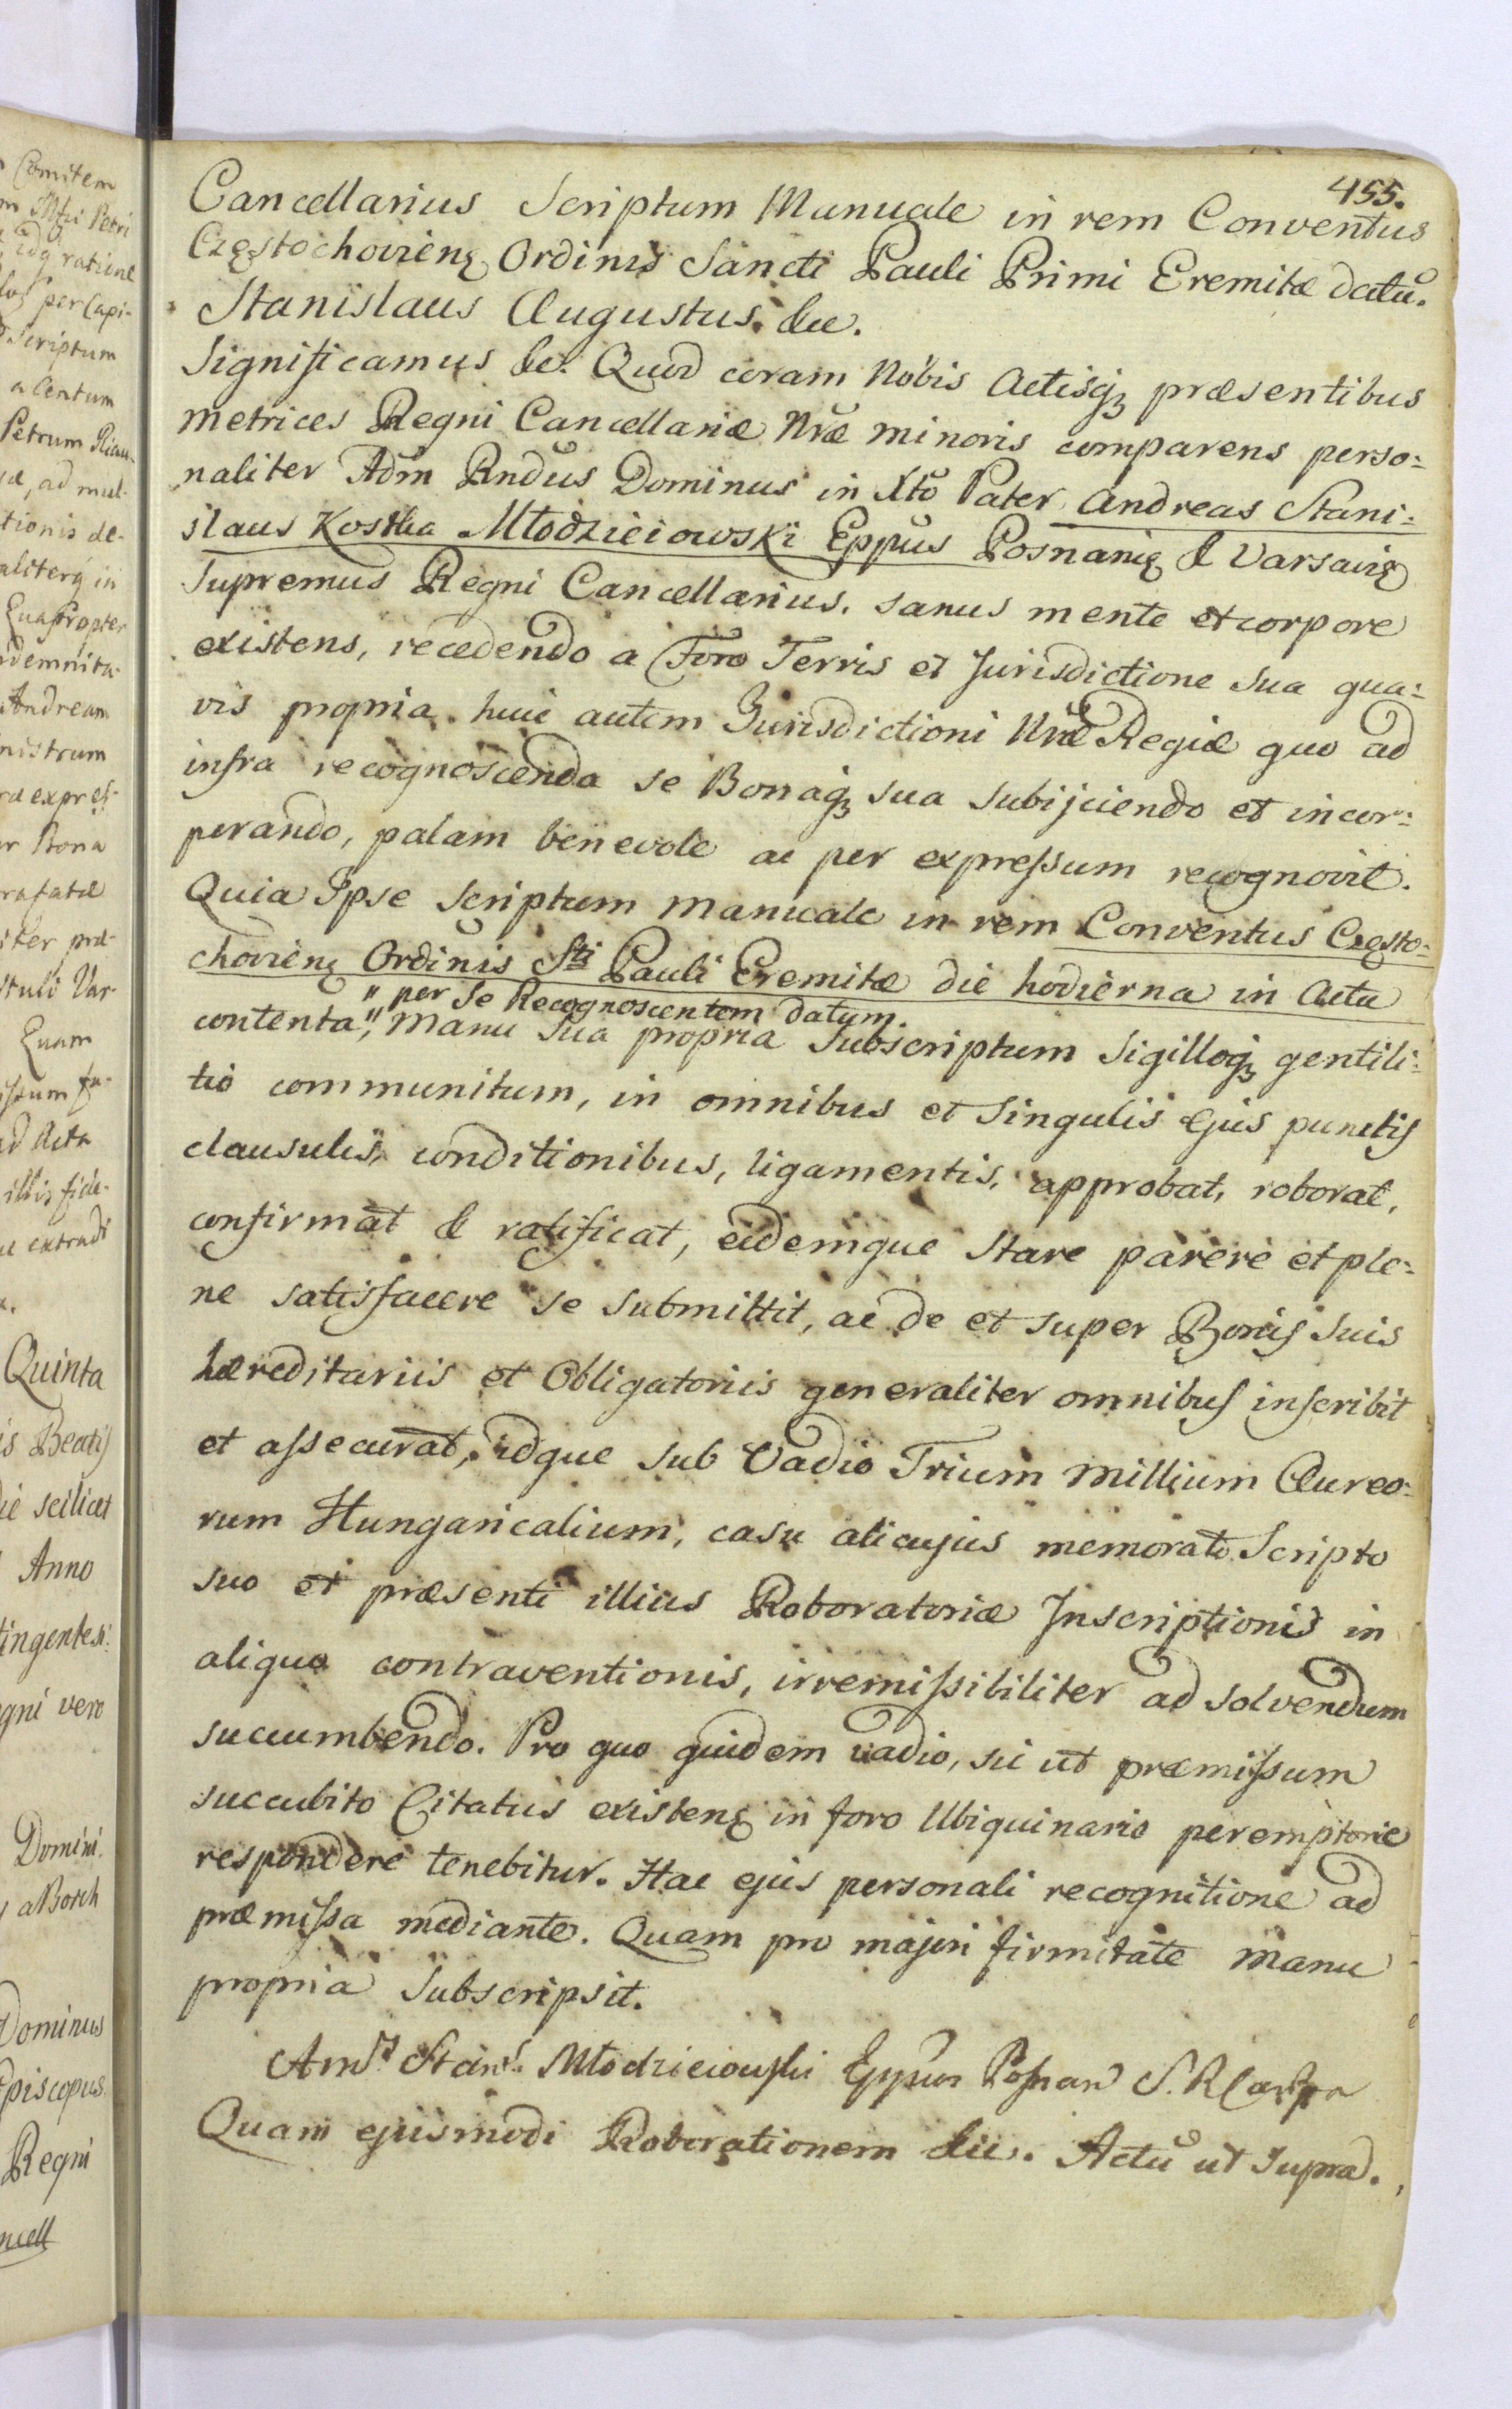 Comitem
Petri
ratione
per Capi-
Scriptum
a Centum
Petrum Riau-
ad mul-
tionis de-
aliterq in
Quapropter
ndemnita-
Andream
nistrum
expres-
Bona
iter præ-
stuli Var-
Quam
ad Acta
extradi
Quinta
is Beatis
die scilicet
Anno
tingentesi:
gni vero
Domini
a Borch
Dominus
Episcopus
Regni
ncell
455.
Cancellarius Scriptum Manuale in rem Conventus
Częstochovienę Ordinis Sancti Pauli Primi Eremitæ datũ.
Stanislaus Augustus. &c.
Significamus &c. Quod coram Nobis Actisqȝ præsentibus
metrices Regni Cancellariæ Nræ minoris comparens perso:
naliter Adm Rndus Dominus in Xto Pater Andreas Stani:
slaus Kostka Młodzieiowski Eppus Posnanię & Varsavię
Supremus Regni Cancellarius. sanus mente et corpore
existens, recedendo a Foro Terris et Jurisdictione sua qua:
vis propria. huic autem Jurisdictioni Nræ Regiæ quo ad
infra recognoscenda se Bonaqȝ sua subijciendo et incor:
perando, palam benevole ac per expressum recognovit.
Quia Ipse Scriptum manuale in rem Conventus Często:
chovienę Ordinis Sti Pauli Eremitæ die hodierna in Actu
" per se Recognoscentem datum.
contenta", Manu sua propria subscriptum Sigilloqȝ gentili:
tio communitum, in omnibus et singulis ejus punctis
clausulis, conditionibus, ligamentis, approbat, roborat,
confirmat & ratificat, eidemque stare parere et ple:
ne satisfacere se submittit, ac de et super Bonis suis
hæreditariis et Obligatoriis generaliter omnibus inscribit
et assecurat, idque sub Vadio Trium Millium Aureo:
rum Hungaricalium, casu alicujus memorato Scripto
suo et præsenti illius Roboratoriæ Inscriptionis in
aliquo contraventionis, irremissibiliter ad solvendum
succumbendo. Pro quo quidem vadio, sic ut præmissum
succubito Citatus existenę in foro Ubiquinario peremptorie
respondere tenebitur. Hac ejus personali recognitione ad
præmissa mediante. Quam pro majori firmitate manu
propria subscripsit.
And. Stan. Młodzieiowski Eppus Posnan S. R
Quam ejusmodi Roborationem &c. Actũ ut supra.